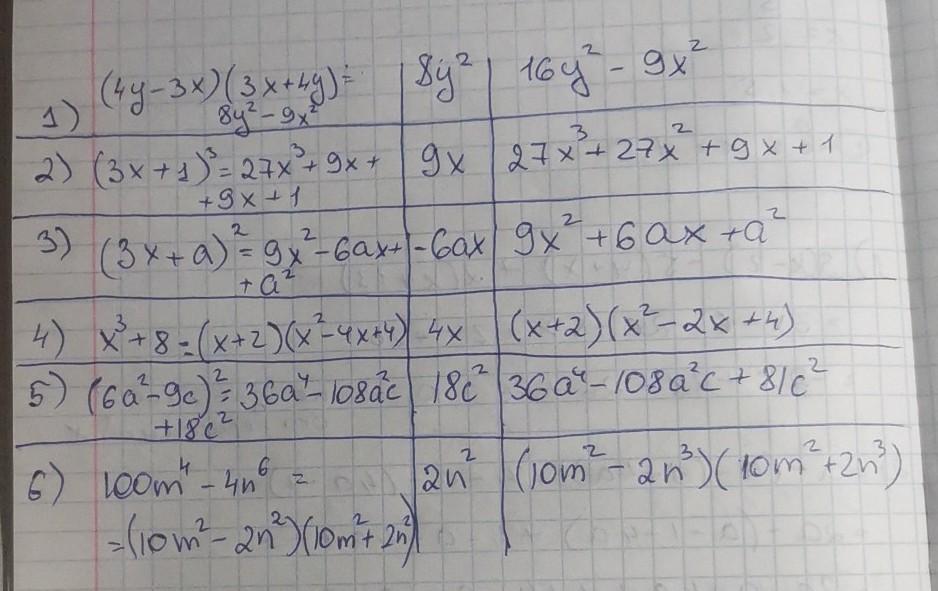 1) (4y-3x)(3x+4y)= | 8y² | 16y² - 9x²
8y² - 9x²
2) (3x+1)³ = 27x³+9x+ | 9x | 27x³+27x²+9x+1
+9x+1
3) (3x+a)² = 9x²-6ax+ | -6ax | 9x²+6ax+a²
+a²
4) x³+8=(x+2)(x²-4x+4) | 4x | (x+2)(x²-2x+4)
5) (6a²-9c)² = 36a⁴-108a²c | 18c² | 36a⁴-108a²c+81c²
+18c²
6) 100m⁴-4n⁶ = | 2n² | (10m²-2n³)(10m²+2n³)
=(10m²-2n²)(10m²+2n²)